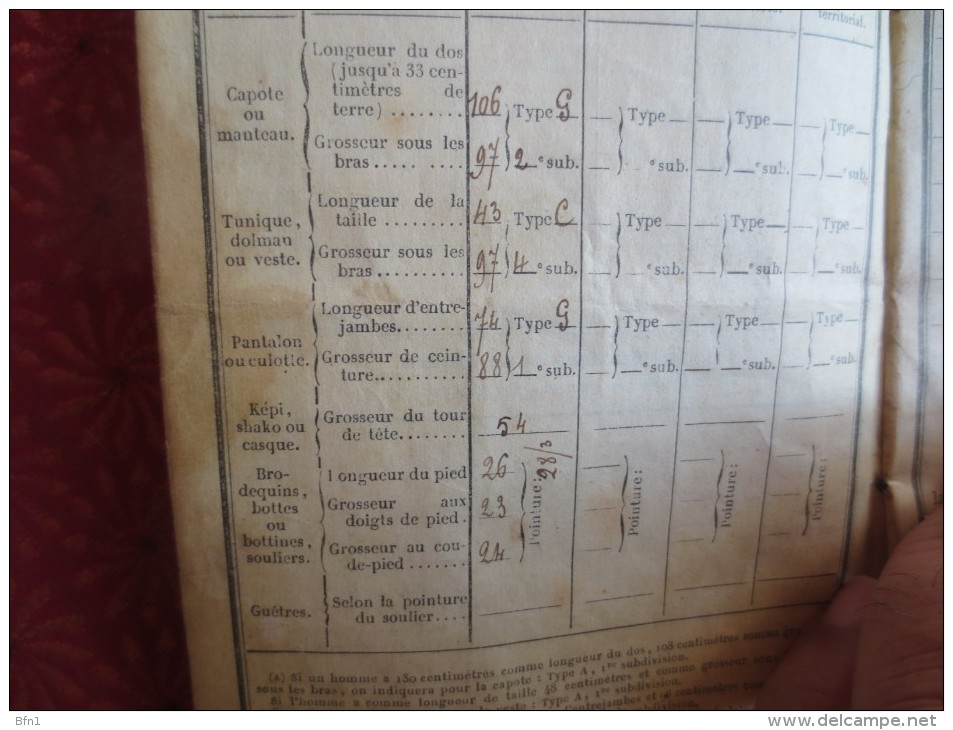 territorial.
Capote
ou
manteau.
Longueur du dos
(jusqu'à 33 cen-
timètres de
terre) ........
106 Type G — Type — — Type — — Type —
Grosseur sous les
bras..... ....
97 2 e sub. — e sub. — — e sub. — — e sub.
Tunique,
dolman
ou veste.
Longueur de la
taille .........
43 Type C — Type — — Type — — Type —
Grosseur sous les
bras..........
97 4 e sub. — e sub. — — e sub. — — e sub.
Pantalon
ou culotte.
Longueur d'entre-
jambes........
74 Type G — Type — — Type — — Type —
Grosseur de cein-
ture..........
88 1 e sub. — e sub. — — e sub. — — e sub.
Képi,
shako ou
casque.
Grosseur du tour
de tête.......
54
Bro-
dequins,
bottes
ou
bottines,
souliers.
Longueur du pied
26
Grosseur aux
doigts de pied.
23
Grosseur au cou-
de-pied .......
24
Pointure: 28/3
Pointure:
Pointure:
Pointure:
Guêtres.
Selon la pointure
du soulier....
(A) Si un homme a 130 centimètres comme longueur du dos, 108 centimètres comme
sous les bras, on indiquera pour la capote : Type A, 1re subdivision.
Si l'homme a comme longueur de taille 48 centimètres et comme grosseur sous
: Type A, 1re subdivision.
d'entrejambes et centimètres
Bfn1
www.delcampe.net